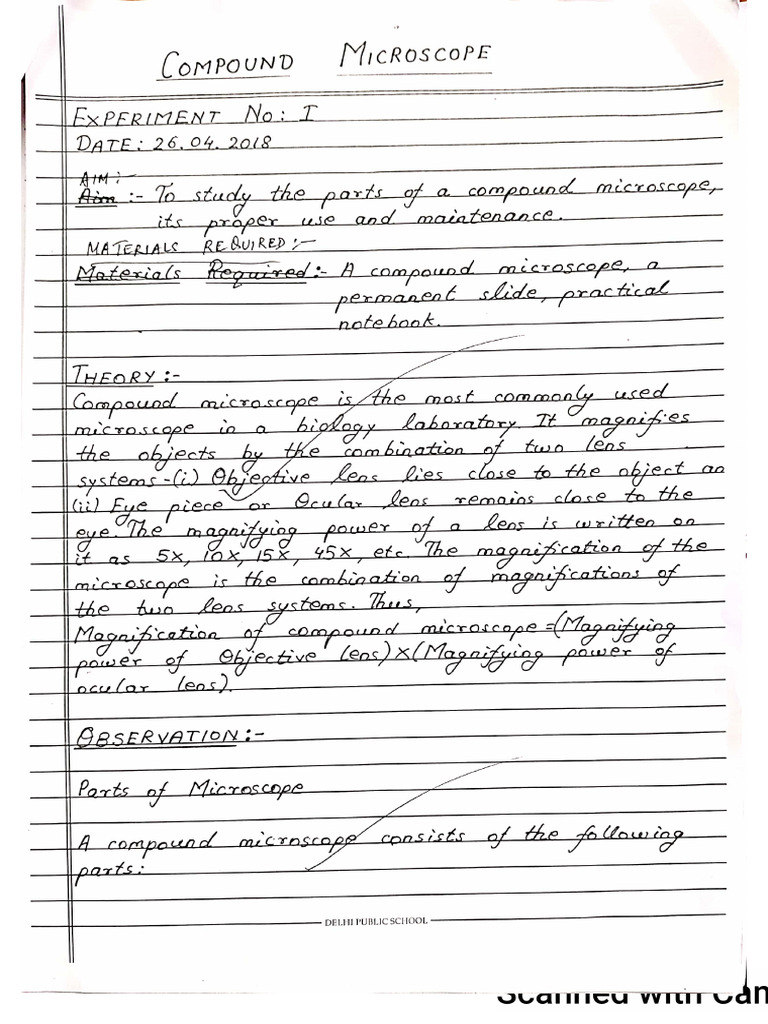 COMPOUND MICROSCOPE
EXPERIMENT No: I
DATE: 26.04.2018
AIM:-
Aim :- To study the parts of a compound microscope,
its proper use and maintenance.
MATERIALS REQUIRED:-
Materials Required:- A compound microscope, a
permanent slide, practical
notebook.
THEORY:-
Compound microscope is the most commonly used
microscope in a biology laboratory. It magnifies
the objects by the combination of two lens
systems-(i) Objective lens lies close to the object an
(ii) Eye piece or Ocular lens remains close to the
eye. The magnifying power of a lens is written on
it as 5x, 10x, 15x, 45x, etc. The magnification of the
microscope is the combination of magnifications of
the two lens systems. Thus,
Magnification of compound microscope=(Magnifying
power of Objective lens)×(Magnifying power of
ocular lens).
OBSERVATION:-
Parts of Microscope
A compound microscope consists of the following
parts:
DELHI PUBLIC SCHOOL
Scanned with Can